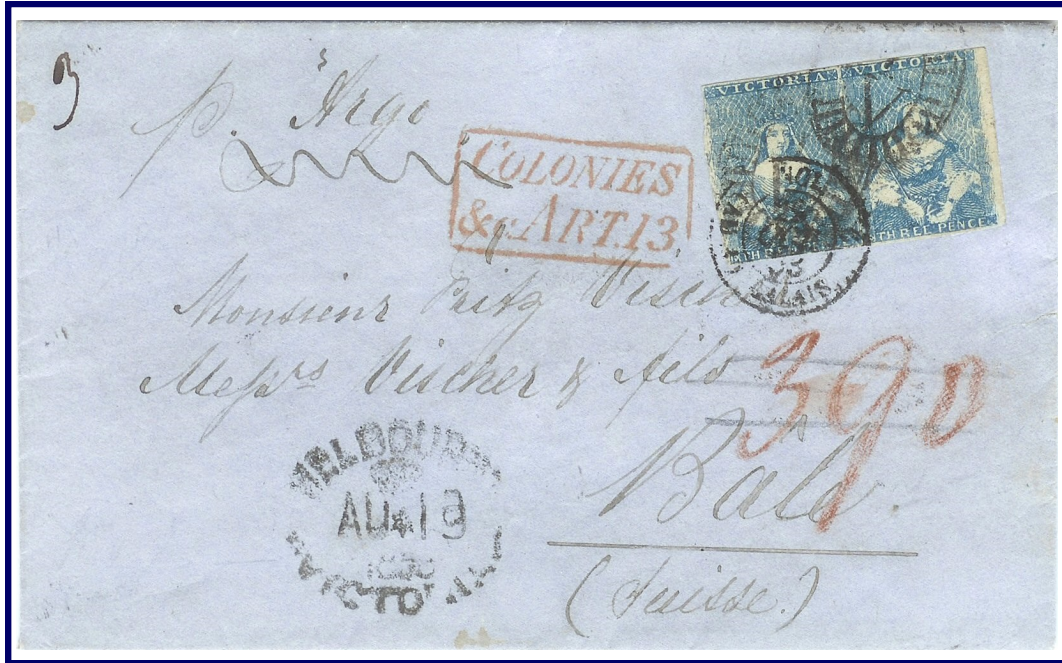 3
p. "Argo
COLONIES
& ART. 13
VICTORIA VICTORIA
THREE PENCE
CALAIS
Monsieur Fritz
Messrs Vischer & fils
390
Bale.
(Suisse.)
MELBOURNE
AU 18
VICTORIA